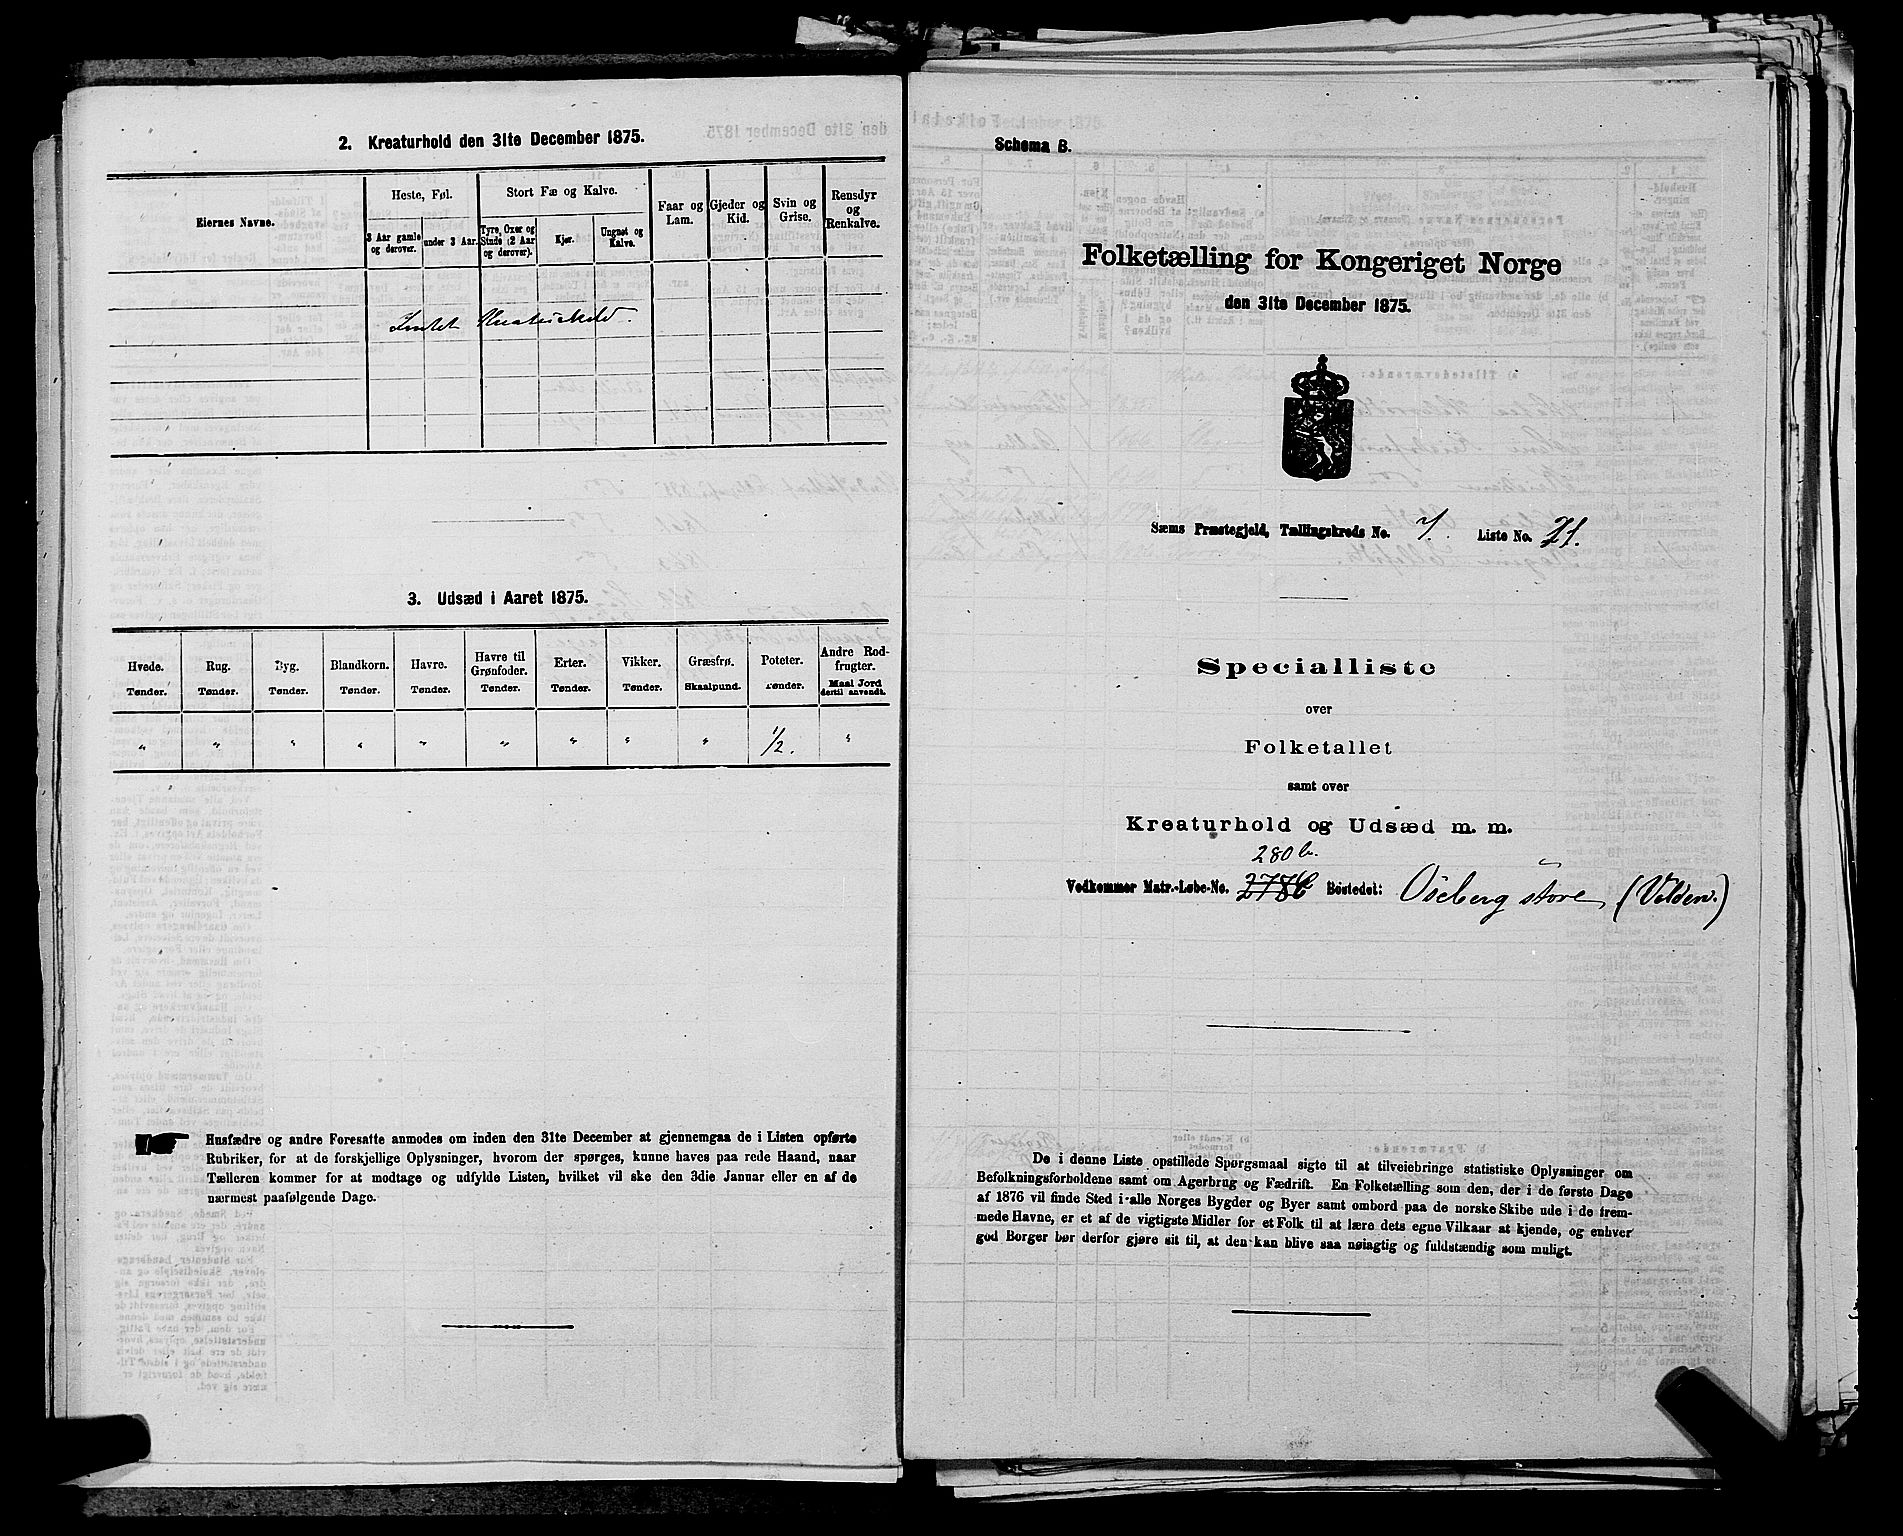 2. Kreaturhold den 31te December 1875.
Eiernes Navne.
Heste, Føl.
3 Aar gamle og derover.
under 3 Aar.
Stort Fæ og Kalve.
Tyre, Oxer og Stude (2 Aar og derover).
Kjør.
Ungnøt og Kalve.
Faar og Lam.
Gjeder og Kid.
Svin og Grise.
Rensdyr og Renkalve.
Intet Kreaturhold.
3. Udsæd i Aaret 1875.
Hvede. Rug. Byg. Blandkorn. Havre. Havre til Grønfoder. Erter. Vikker. Græsfrø. Poteter. Andre Rodfrugter.
Tønder. Tønder. Tønder. Tønder. Tønder. Tønder. Tønder. Tønder. Skaalpund. Tønder. Maal Jord dertil anvendt.
" " " " " " " " " 1/2. "
Husfædre og andre Foresatte anmodes om inden den 31te December at gjennemgaa de i Listen opførte
Rubriker, for at de forskjellige Oplysninger, hvorom der spørges, kunne haves paa rede Haand, naar
Tælleren kommer for at modtage og udfylde Listen, hvilket vil ske den 3die Januar eller en af de
nærmest paafølgende Dage.
Schema B.
Folketælling for Kongeriget Norge
den 31te December 1875.
Sæms Præstegjeld, Tællingskreds No. 7. Liste No. 21.
Specialliste
over
Folketallet
samt over
Kreaturhold og Udsæd m. m.
280 b.
Vedkommer Matr.-Løbe-No. 278 c Bostedet: Oseberg store (Velden.)
De i denne Liste opstillede Spørgsmaal sigte til at tilveiebringe statistiske Oplysninger om
Befolkningsforholdene samt om Agerbrug og Fædrift. En Folketælling som den, der i de første Dage
af 1876 vil finde Sted i alle Norges Bygder og Byer samt ombord paa de norske Skibe ude i de frem-
mede Havne, er et af de vigtigste Midler for et Folk til at lære dets egne Vilkaar at kjende, og enhver
god Borger bør derfor gjøre sit til, at den kan blive saa nøiagtig og fuldstændig som muligt.